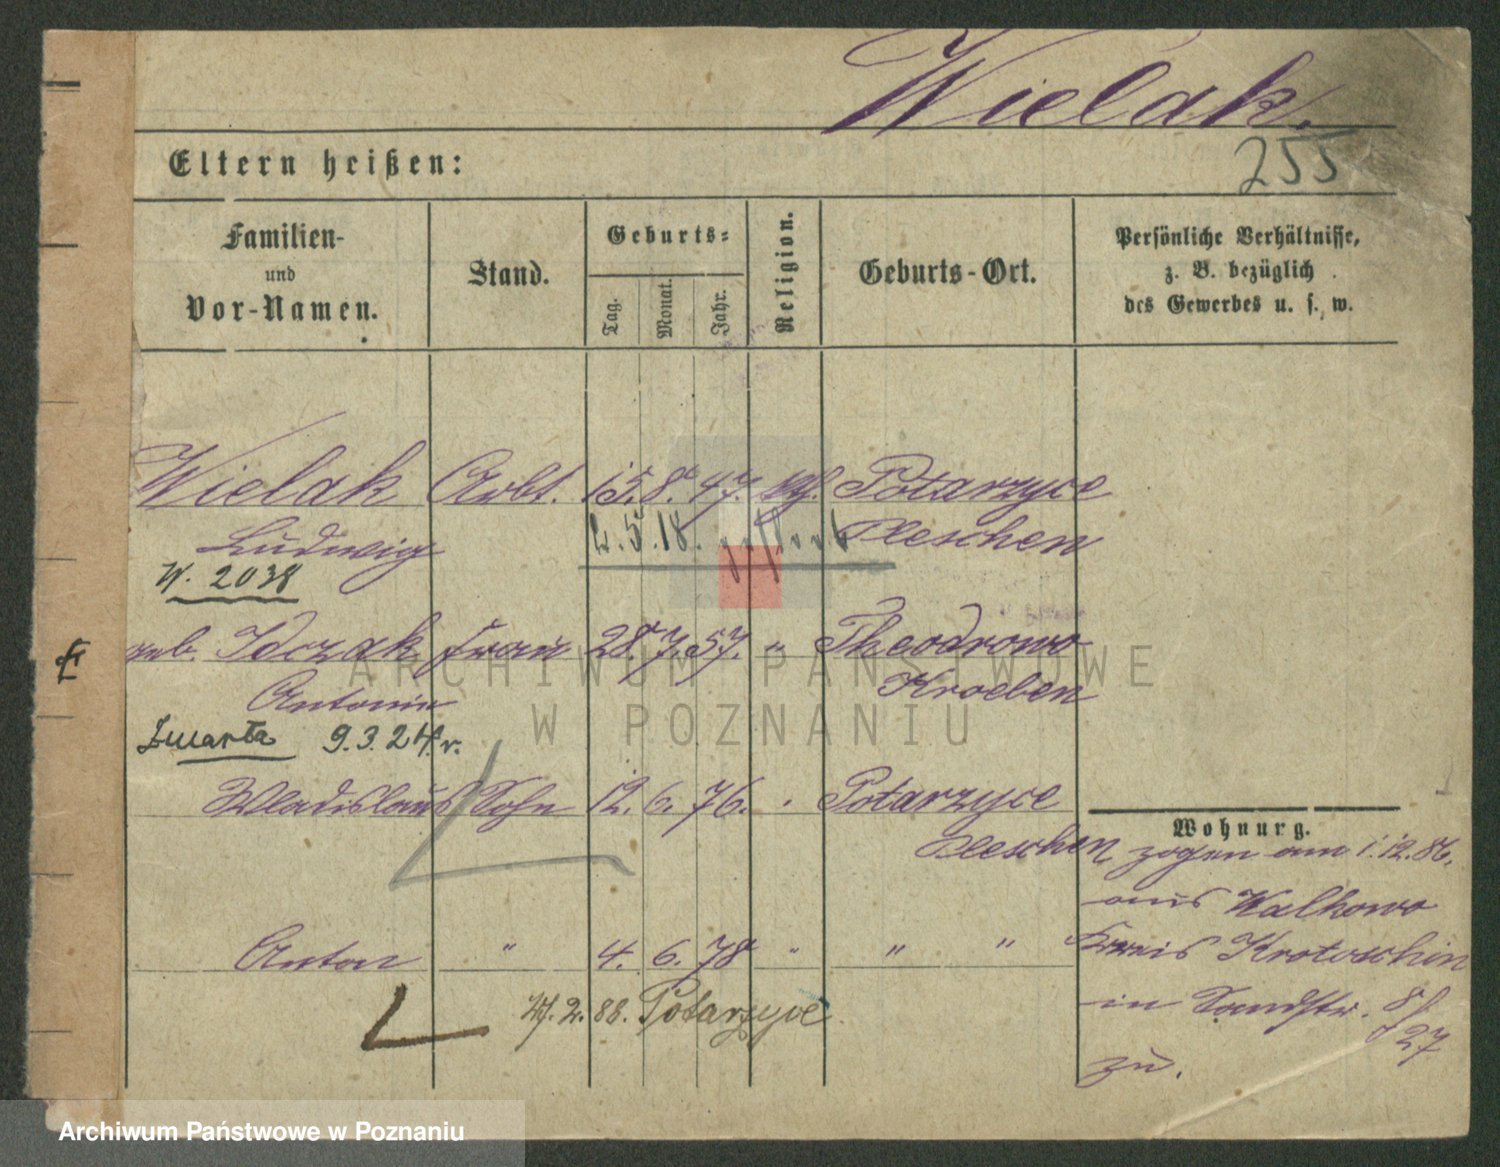 Wielak.
255
Eltern heißen:
Familien-
und
Vor-Namen.
Stand.
Geburts-
Tag.
Monat.
Jahr.
Religion.
Geburts-Ort.
Persönliche Verhältnisse,
z. B. bezüglich
des Gewerbes u. s. w.
Wielak Arbt. 15. 8. 47. kth. Potarzyce
Ludwig Pleschen
2. 5. 18.
W. 2038
geb. Idczak Frau 28. 7. 57. " Theodrowo
Antonie Kroeben
Zmarła 9.3.24 r.
Wladislaus Sohn 12. 6. 76. " Potarzyce
Pleschen
Anton " 4. 6. 78 " " "
2. 88. Potarzyce
Wohnung.
zogen am 1.12.86.
aus Walkowo
Kreis Krotoschin
in Sandstr. 8/
27
zu.
E
ARCHIWUM PAŃSTWOWE
W POZNANIU
Archiwum Państwowe w Poznaniu